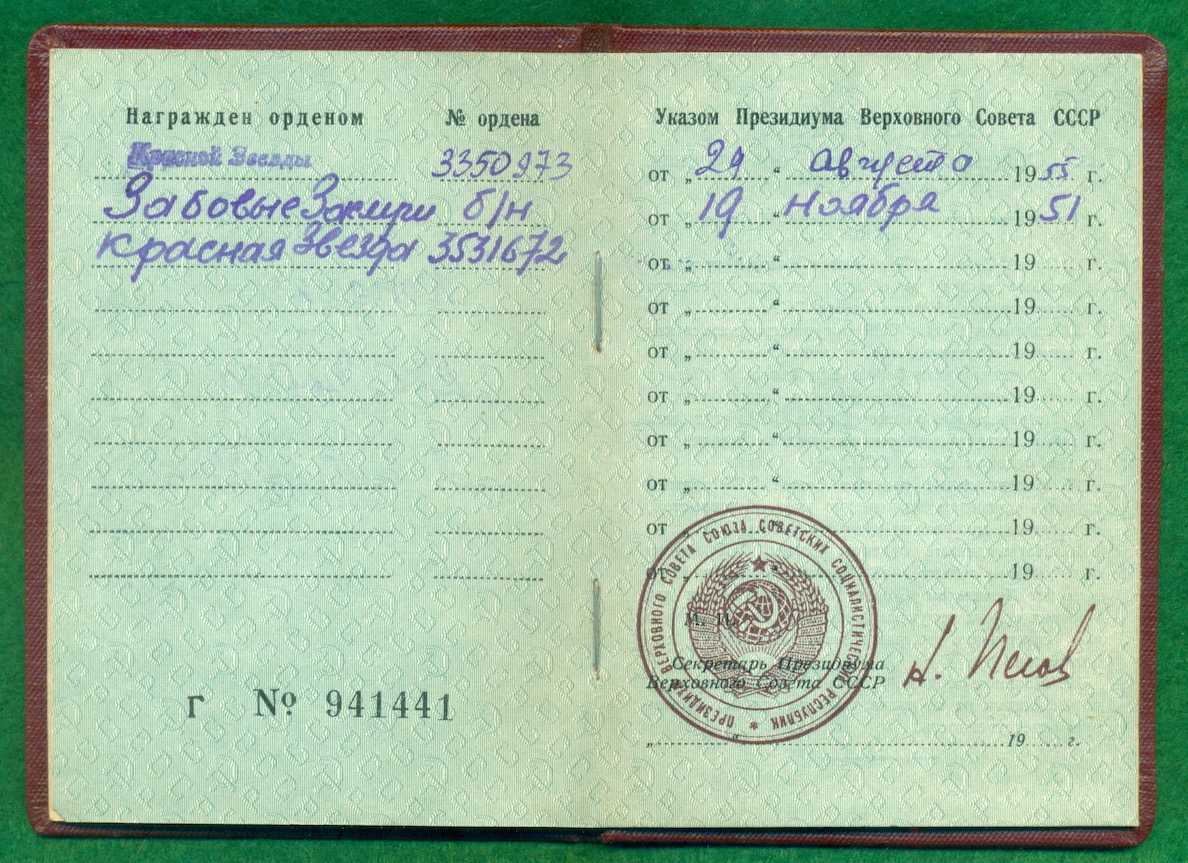 Награжден орденом № ордена
Красной Звезды 3350973
За боевые Заслуги б/н
Красная Звезда 3531672
г № 941441
Указом Президиума Верховного Совета СССР
от „29“ августа 1955 г.
от „19“ ноября 1951 г.
от „ “ 19 г.
от „ “ 19 г.
от „ “ 19 г.
от „ “ 19 г.
от „ “ 19 г.
от „ “ 19 г.
от „ “ 19 г.
от „ “ 19 г.
ПРЕЗИДИУМ ВЕРХОВНОГО СОВЕТА СОЮЗА СОВЕТСКИХ СОЦИАЛИСТИЧЕСКИХ РЕСПУБЛИК
М. П.
Секретарь Президиума
Верховного Совета СССР
„ “ 19 г.